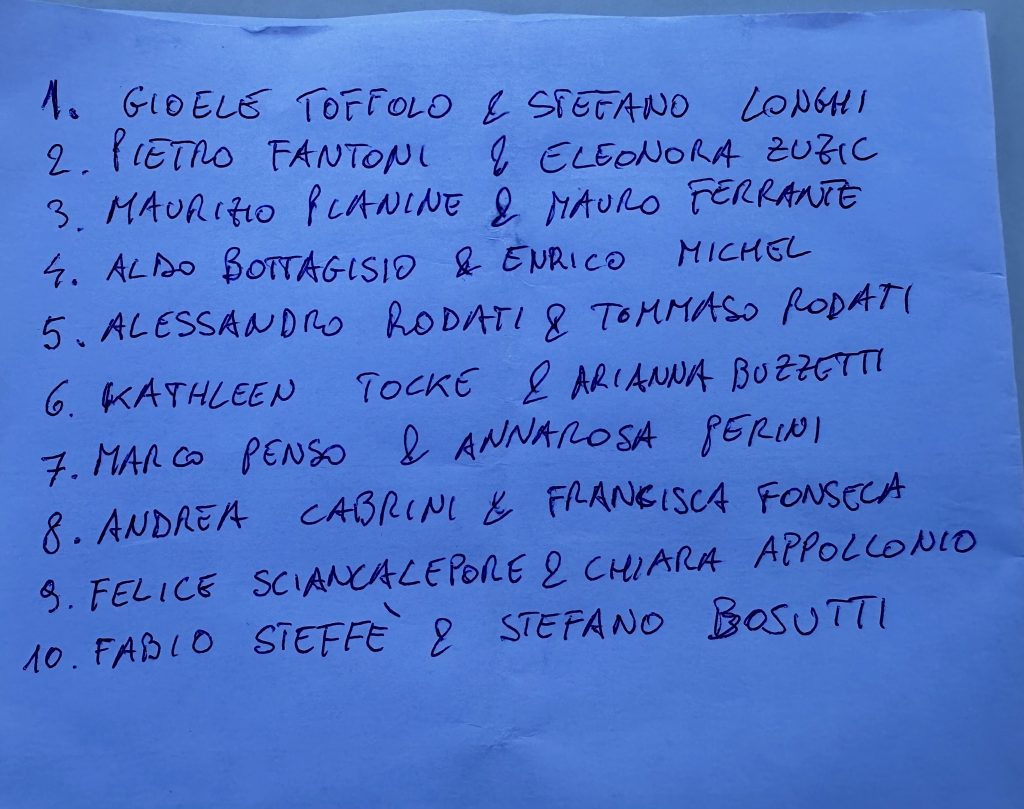 1. GIOELE TOFFOLO & STEFANO LONGHI
2. PIETRO FANTONI & ELEONORA ZUZIC
3. MAURIZIO PLANINE & MAURO FERRANTE
4. ALDO BOTTAGISIO & ENRICO MICHEL
5. ALESSANDRO RODATI & TOMMASO RODATI
6. KATHLEEN TOCKE & ARIANNA BUZZETTI
7. MARCO PENSO & ANNAROSA PERINI
8. ANDREA CABRINI & FRANCISCA FONSECA
9. FELICE SCIANCALEPORE & CHIARA APPOLLONIO
10. FABIO STEFFÈ & STEFANO BOSUTTI